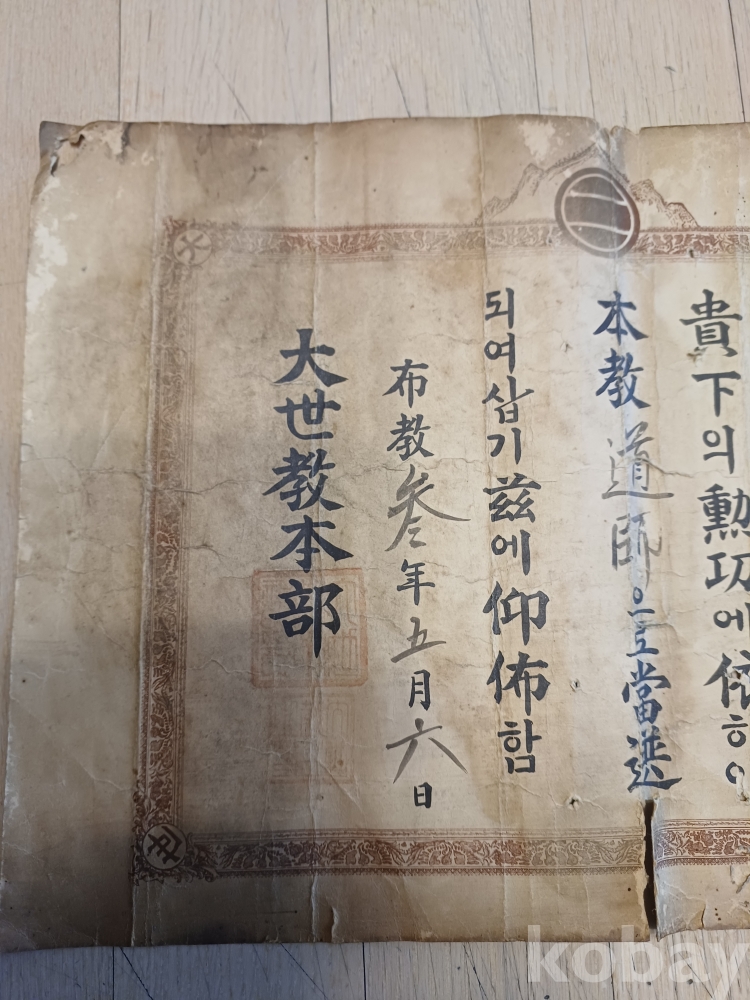 貴下의勲功에依하야
本教道師으로當選
되여삽기玆에仰佈함
布教叄年五月六日
大世教本部
kobay